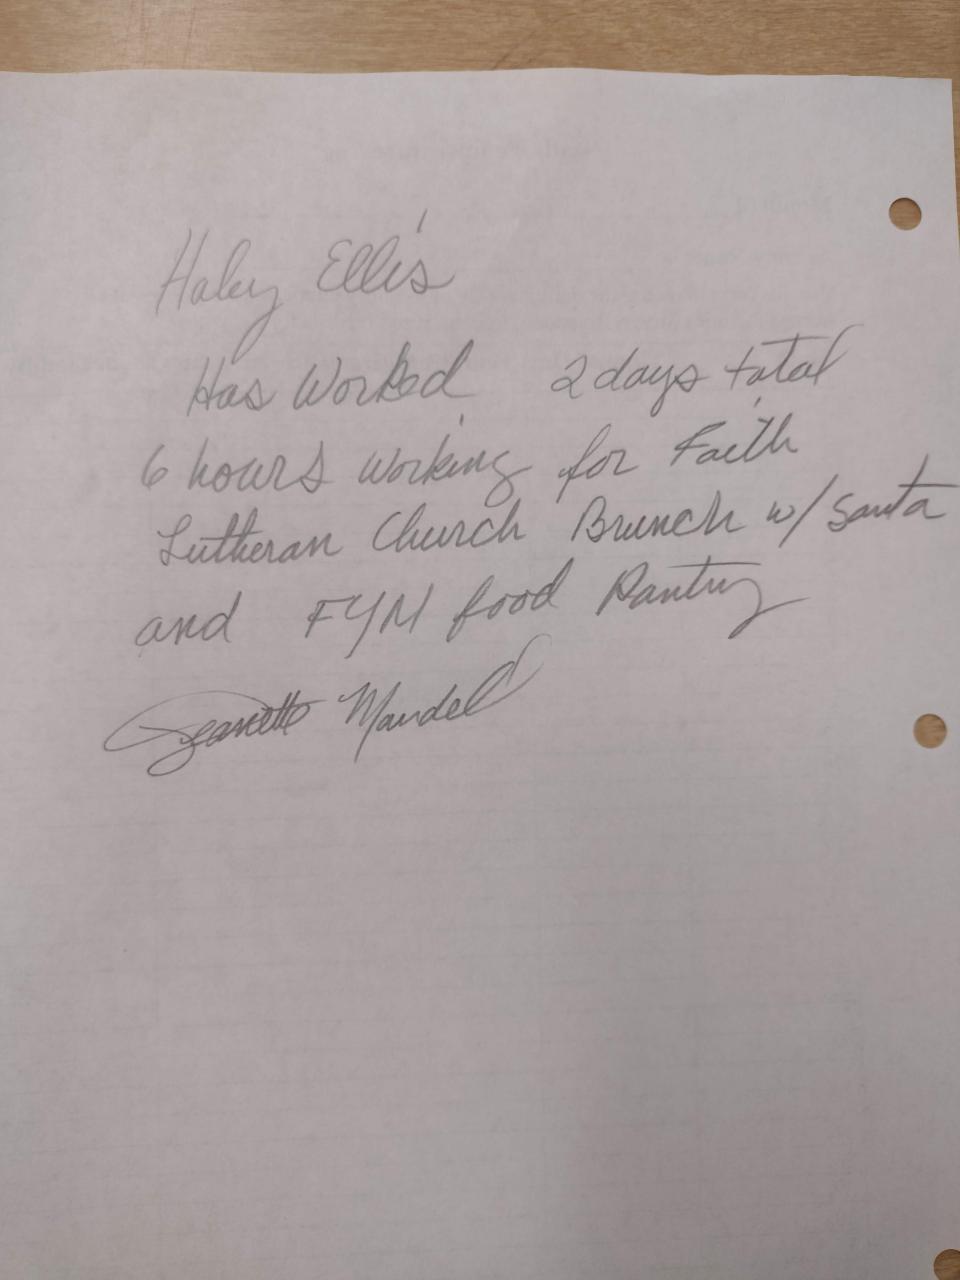 Haley Ellis
Has Worked 2 days total
6 hours working for Faith
Lutheran Church Brunch w/ Santa
and FYM food Pantry
Jeanette Mandel